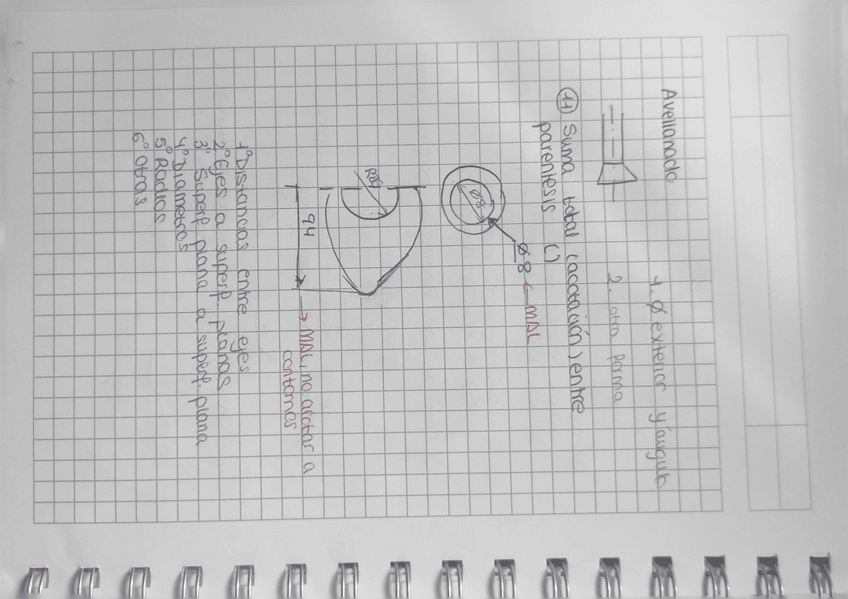 Avellanado
1. Ø exterior y ángulo
2. otra forma
11 Suma total (acotación) entre
parentesis ( )
Ø8
Ø 8 ← MAL
94
→ MAL, no acotar a
contornos
1º Distancias entre ejes
2º Ejes a superf planas
3º Superf plana a superf. plana
4º Diametros
5º Radios
6º Otras